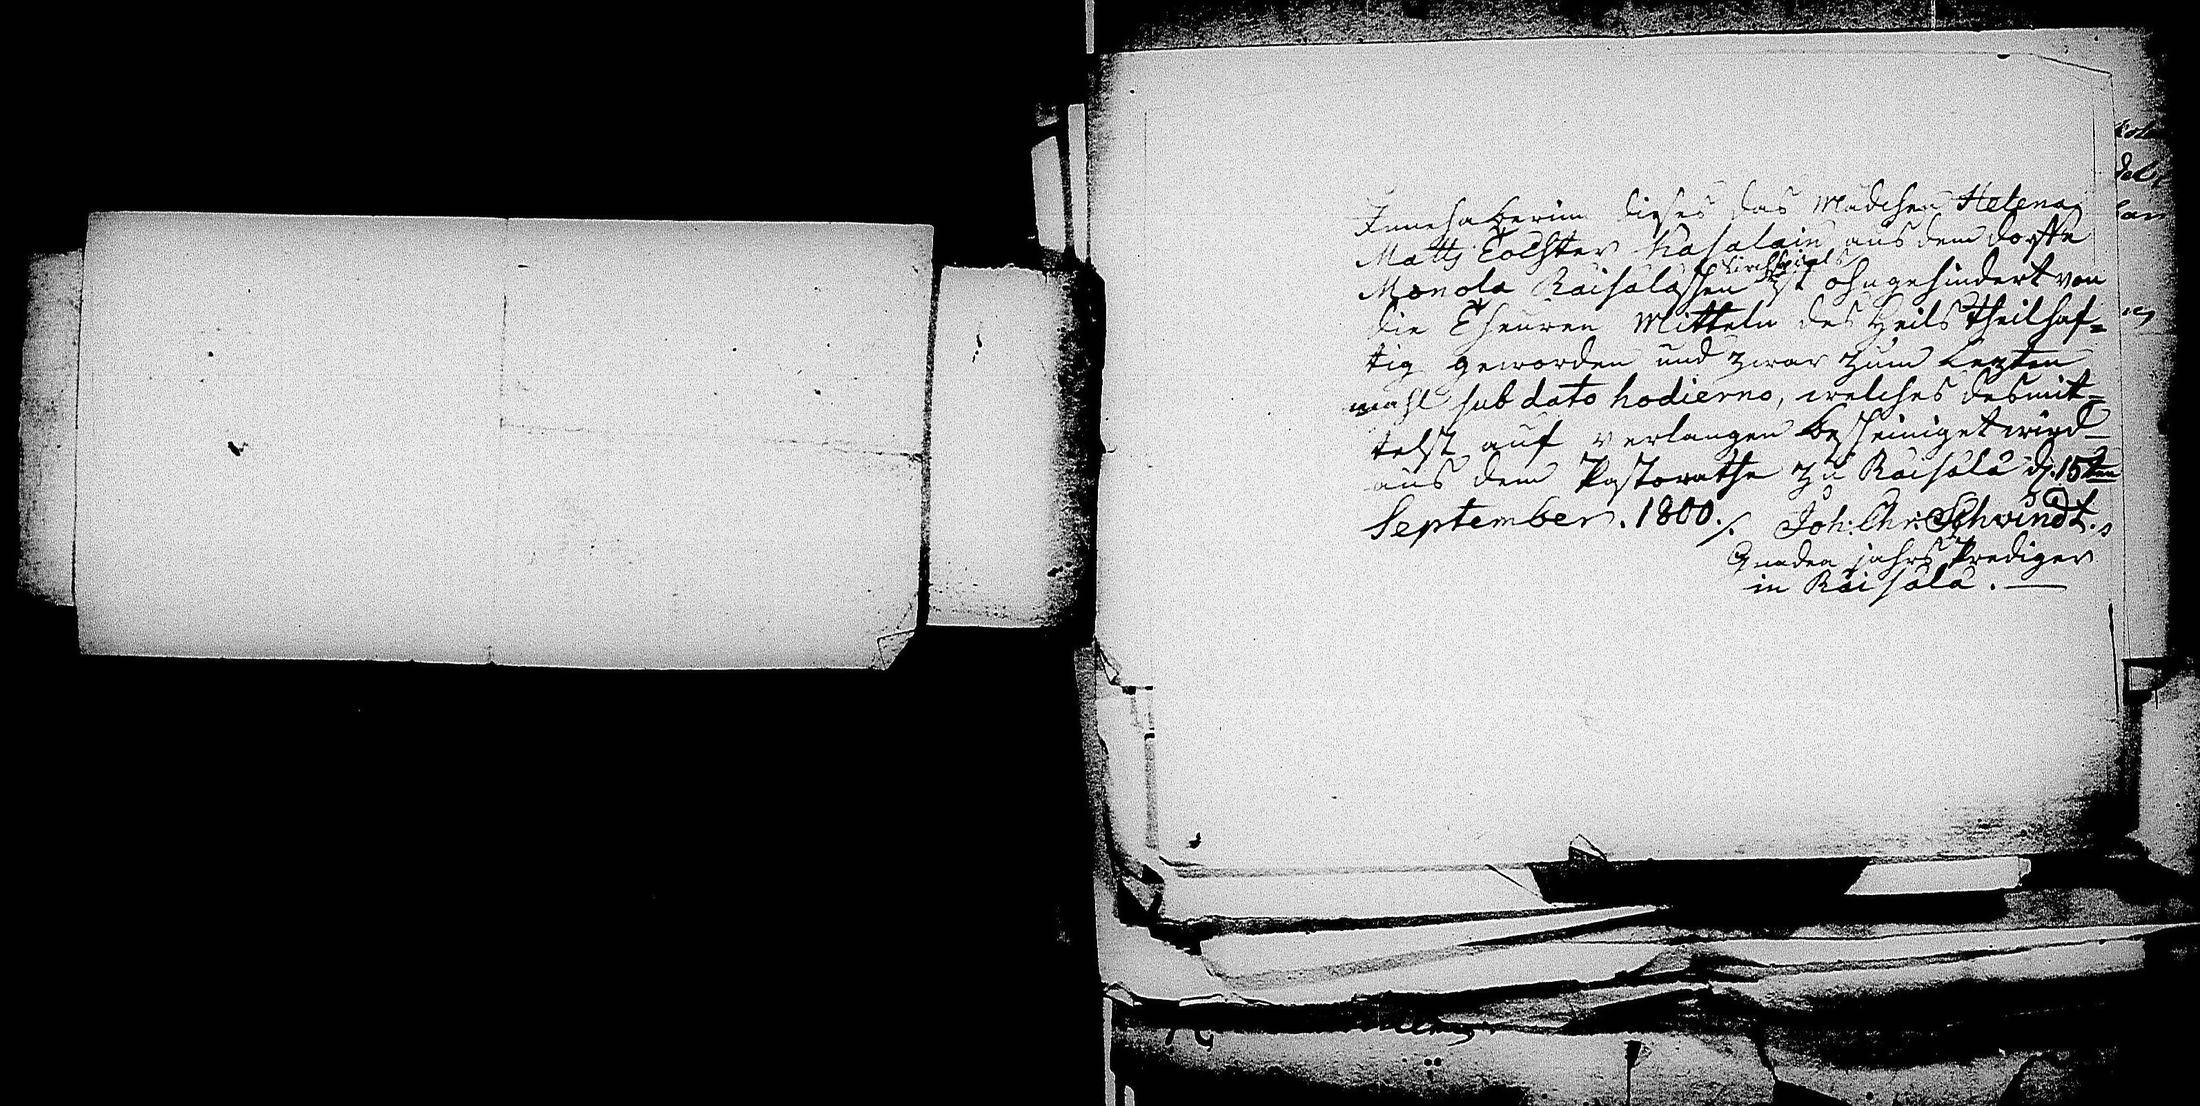 Innehaberin dieses das Mädchen Helena
Matts Tochter Kasalain aus dem dorffe
Monola Räisäläschen Kirchspiels ist ohngehindert von
die Theuren Mitteln des Heils theilhaf=
tig geworden und zwar zum Lezten
mahl sub dato hodierno, welches desmit=
telst auf verlangen bescheiniget wird
aus dem Pastorathe zu Räisälä d. 15ten
September. 1800. /. Joh: Chr: Schwindt.
Gnaden jahrs Prediger
in Räisälä. —